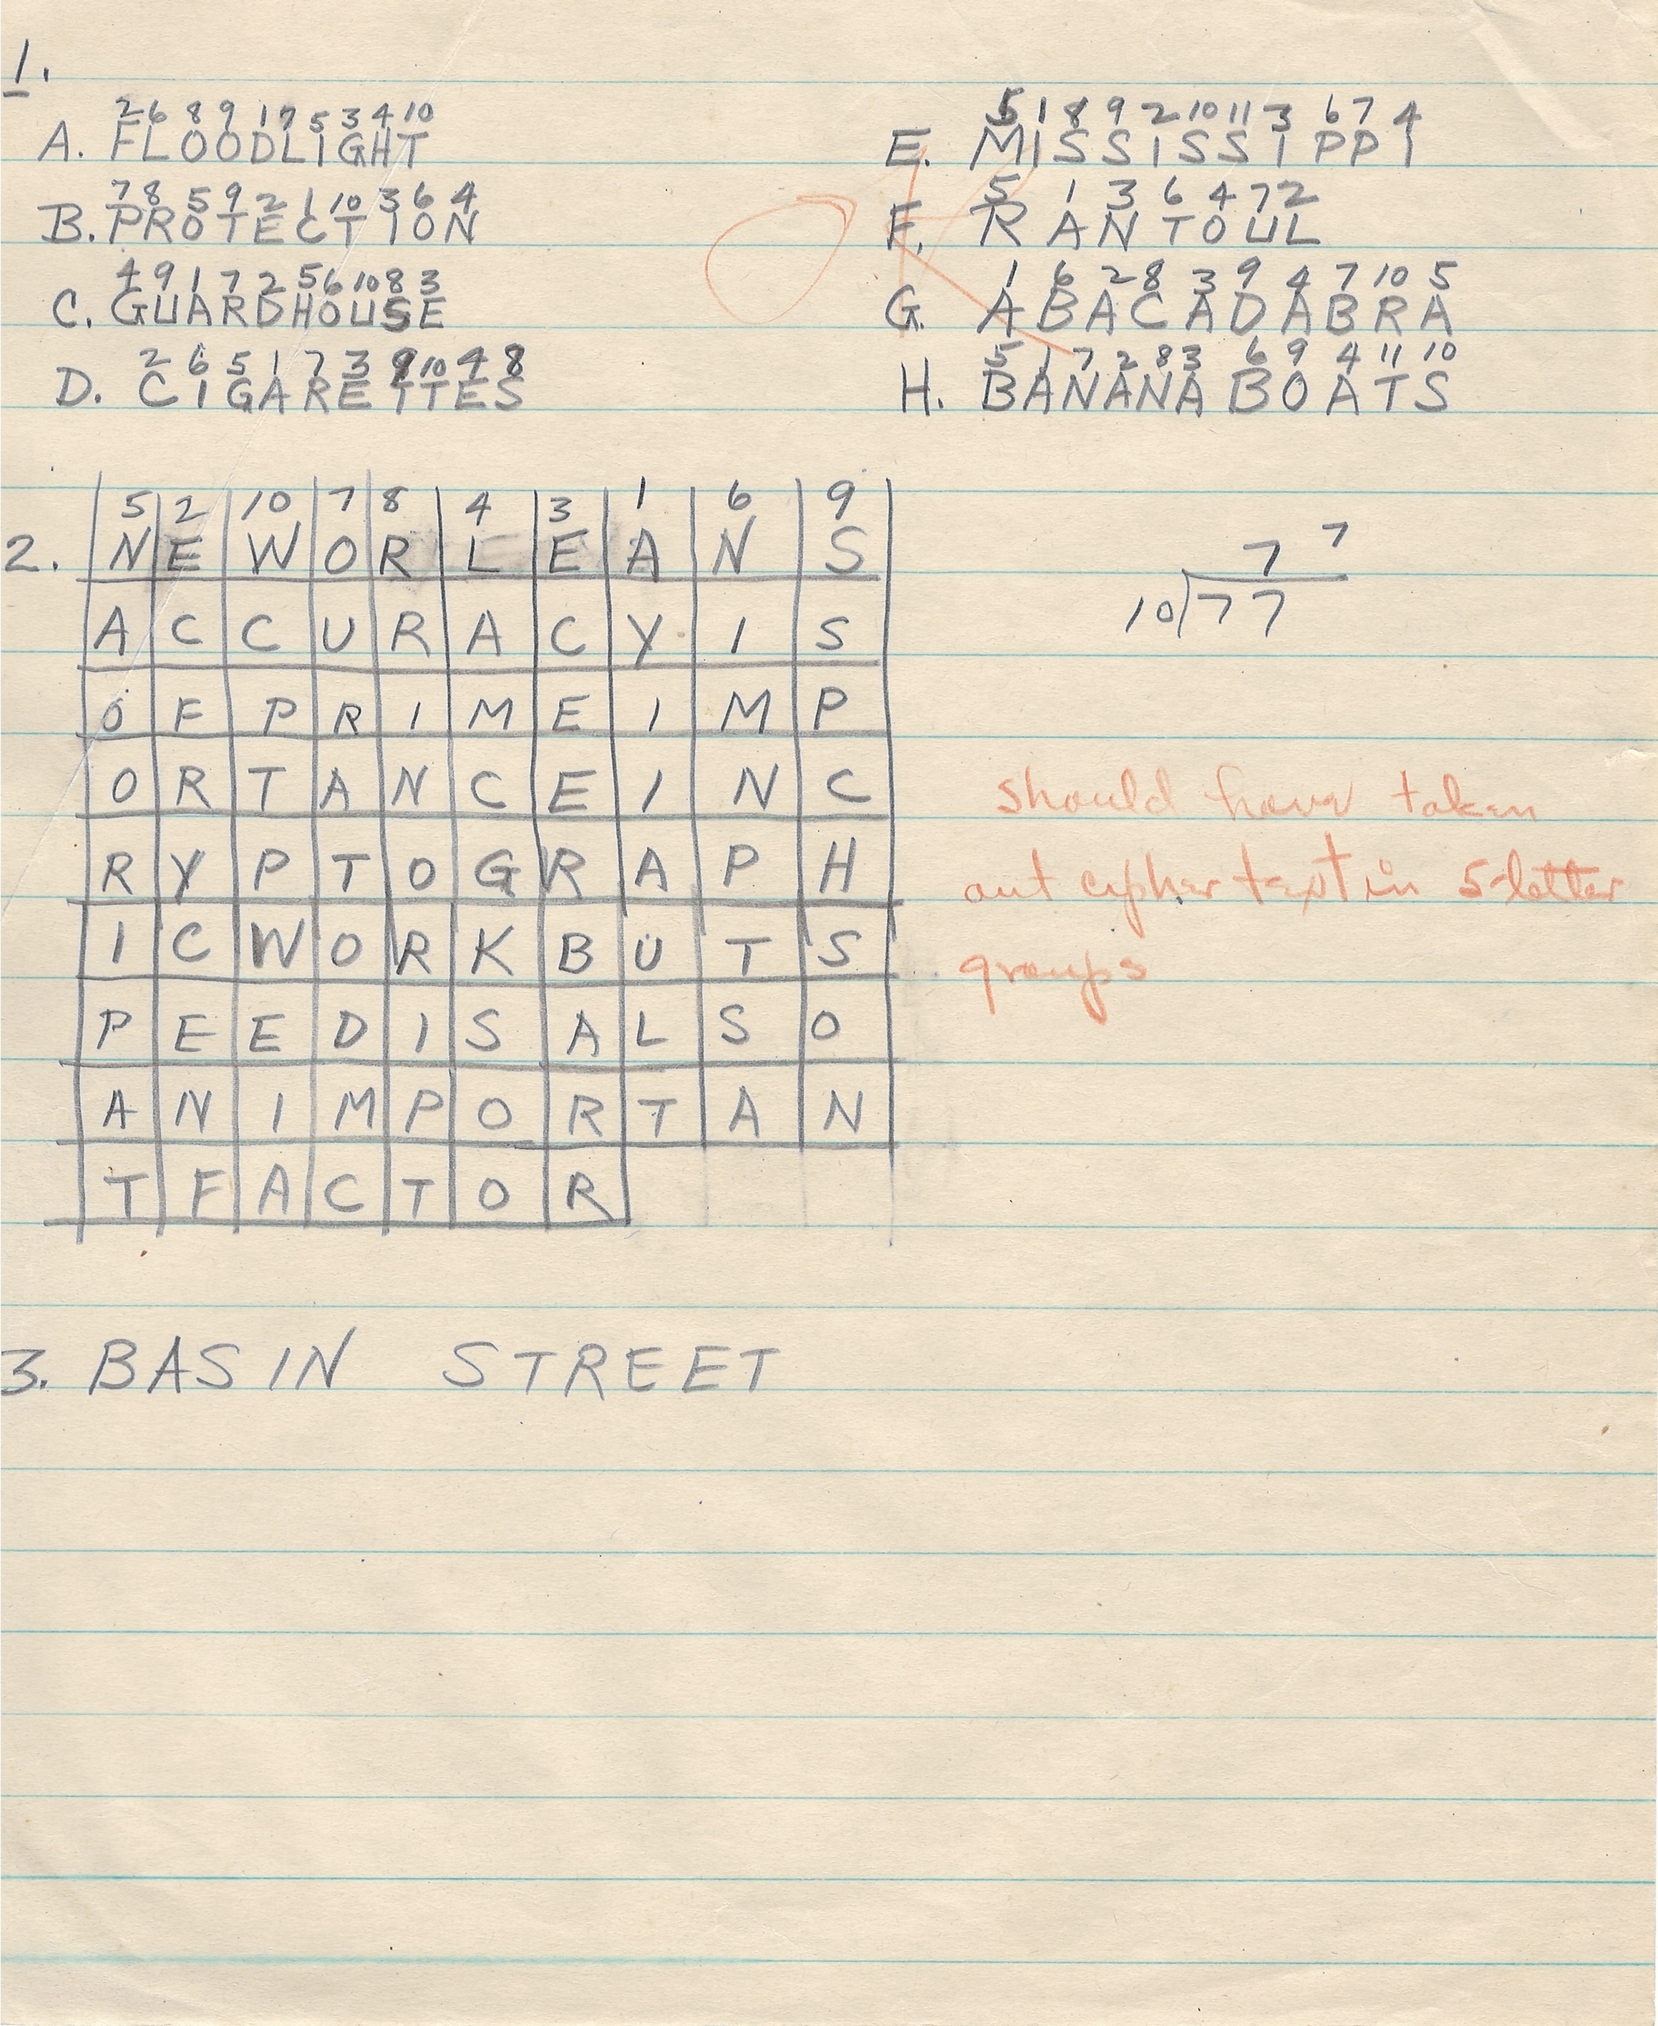 1.
2 6 8 9 1 7 5 3 4 10
A. FLOODLIGHT
7 8 5 9 2 1 10 3 6 4
B. PROTECTION
4 9 1 7 2 5 6 10 8 3
C. GUARDHOUSE
2 6 5 1 7 3 9 10 4 8
D. CIGARETTES
5 1 8 9 2 10 11 3 6 7 4
E. MISSISSIPPI
5 1 3 6 4 7 2
F. RANTOUL
1 6 2 8 3 9 4 7 10 5
G. ABACADABRA
5 1 7 2 8 3 6 9 4 11 10
H. BANANA BOATS
OK
5 2 10 7 8 4 3 1 6 9
2. N E W O R L E A N S
A C C U R A C Y I S
O F P R I M E I M P
O R T A N C E I N C
R Y P T O G R A P H
I C W O R K B U T S
P E E D I S A L S O
A N I M P O R T A N
T F A C T O R
7 7
10 77
should have taken
out cipher text in 5-letter
groups
3. BASIN STREET